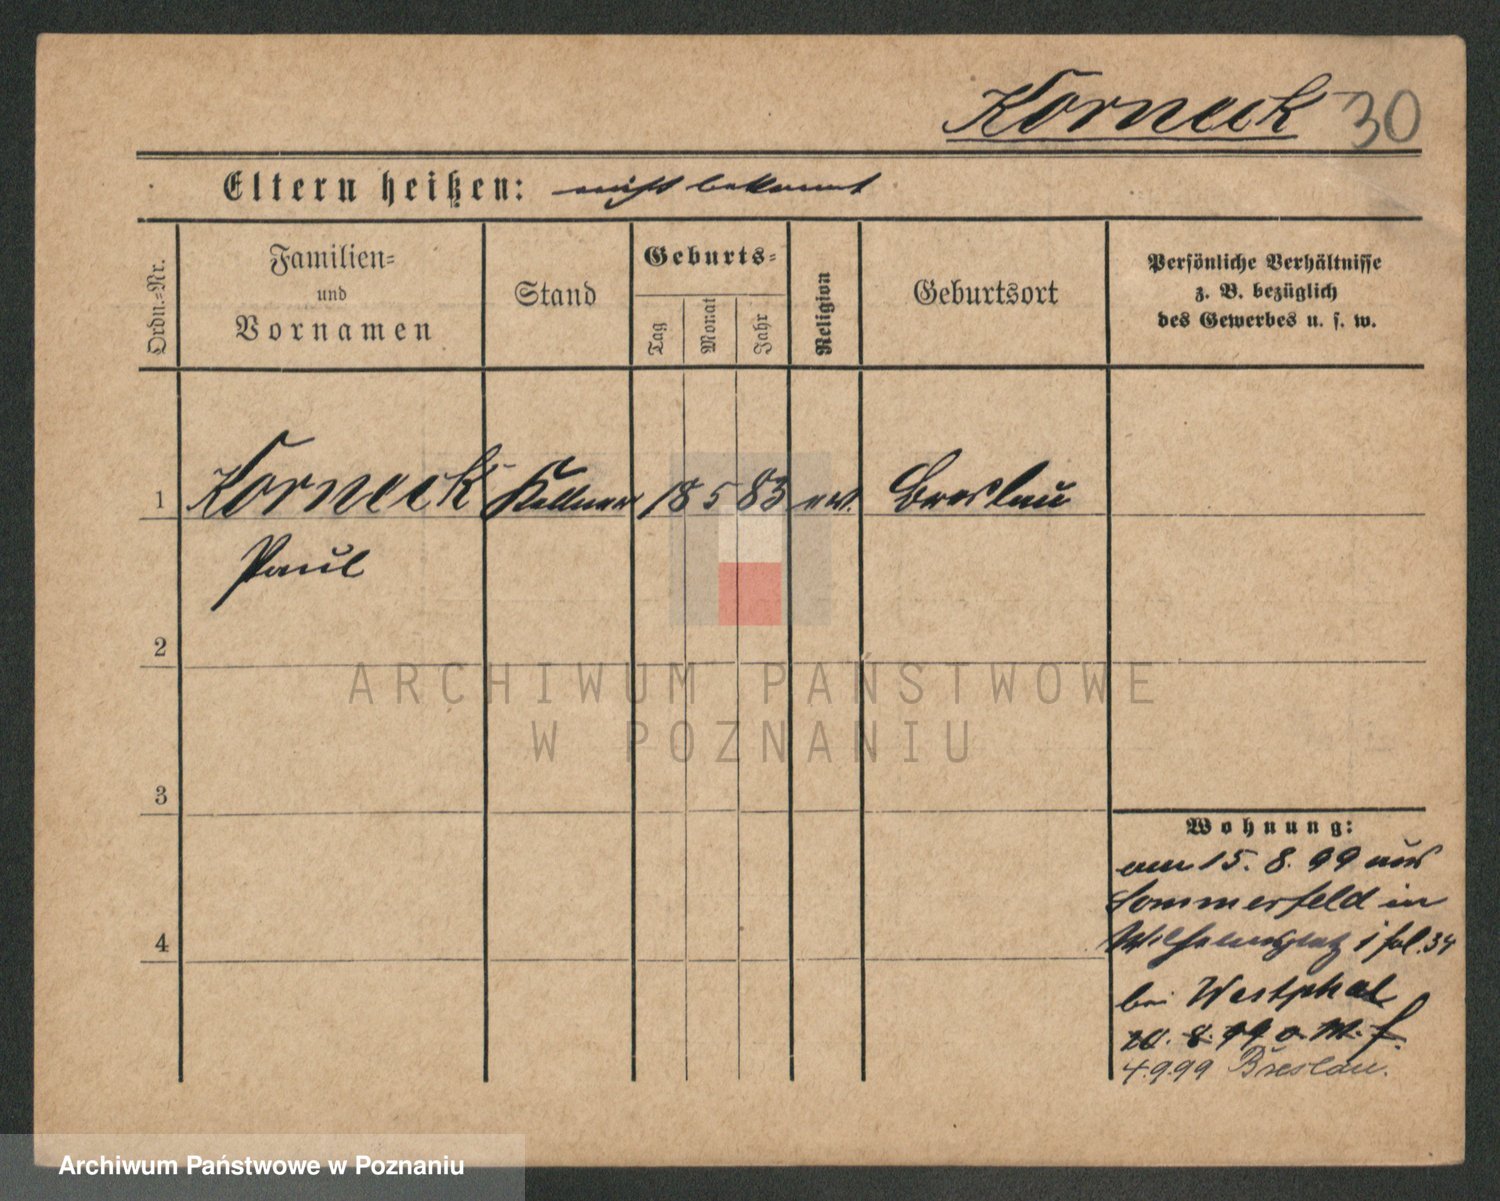 Korneck 30
Eltern heißen: nicht bekannt
Ordn.=Nr.
Familien=
und
Vornamen
Stand
Geburts=
Tag
Monat
Jahr
Religion
Geburtsort
Persönliche Verhältnisse
z. B. bezüglich
des Gewerbes u. s. w.
1 Korneck Kellner 18 5 83 ev. Breslau
Paul
2
3
4
Wohnung:
am 15. 8. 99 aus
Sommerfeld in
Wilhelmsplatz 1 fol. 34
bei Westphal
20. 8. 99 o. M. f.
4.9.99 Breslau.
ARCHIWUM PAŃSTWOWE
W POZNANIU
Archiwum Państwowe w Poznaniu